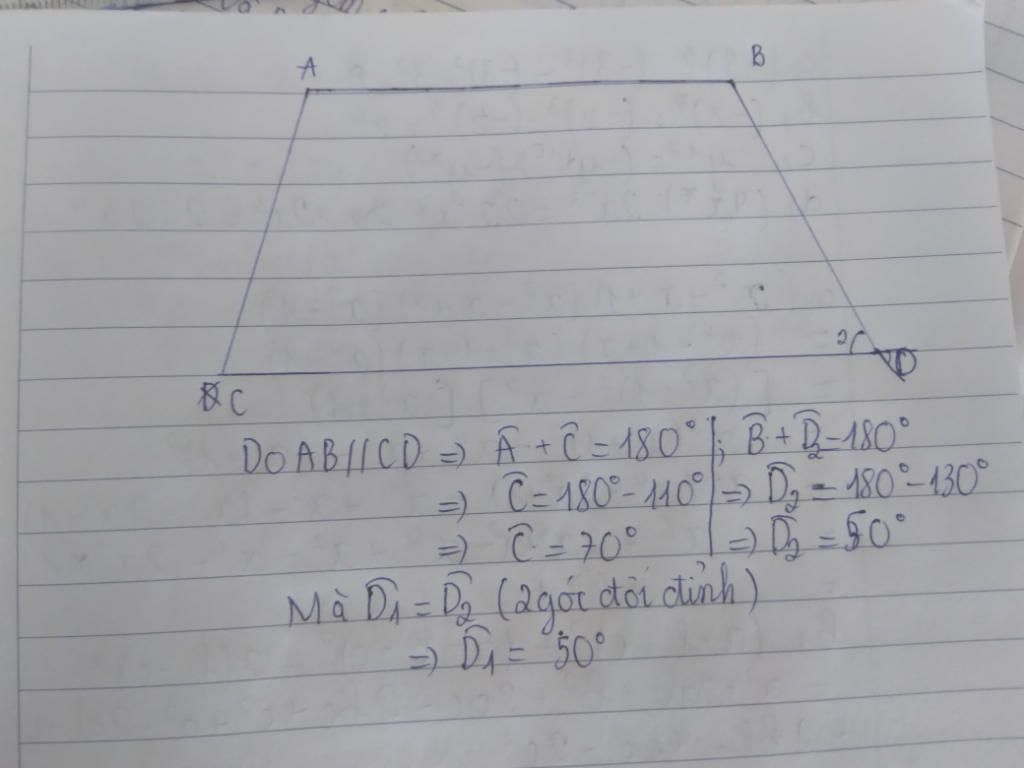 A B
2
C D
DO AB//CD => Â + Ĉ = 180° ; B̂ + D̂2 = 180°
=> Ĉ = 180° - 110° => D̂2 = 180° - 130°
=> Ĉ = 70° => D̂2 = 50°
Mà D̂1 = D̂2 (2 góc đối đỉnh)
=> D̂1 = 50°